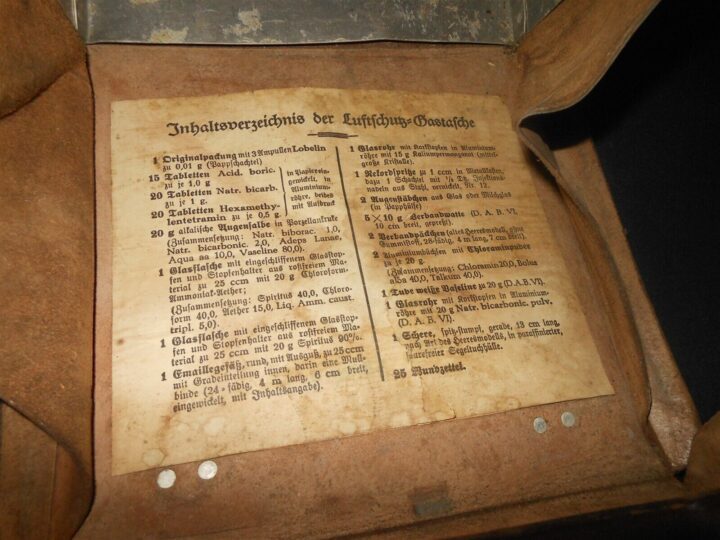 Inhaltsverzeichnis der Luftschutz=Gastasche
1 Originalpackung mit 3 Ampullen Lobelin
zu 0,01 g (Pappschachtel)
15 Tabletten Acid. boric.
zu je 1,0 g
20 Tabletten Natr. bicarb.
zu je 1,0 g
20 Tabletten Hexamethy-
lentetramin zu je 0,5 g
in Papier
eingewickelt, in
Aluminium-
röhre, beides
mit Aufdruck
20 g alkalische Augensalbe in Porzellankruke
(Zusammensetzung: Natr. biborac. 1,0,
Natr. bicarbonic. 2,0, Adeps Lanae,
Aqua aa 10,0, Vaseline 80,0).
1 Glasflasche mit eingeschliffenem Glasstop-
fen und Stopfenhalter aus rostfreiem Ma-
terial zu 25 ccm mit 20 g Chloroform-
Ammoniak-Aether;
(Zusammensetzung: Spiritus 40,0, Chloro-
form 40,0, Aether 15,0, Liq. Amm. caust.
tripl. 5,0).
1 Glasflasche mit eingeschliffenem Glasstop-
fen und Stopfenhalter aus rostfreiem Ma-
terial zu 25 ccm mit 20 g Spiritus 90%.
1 Emaillegefäß, rund, mit Ausguß, zu 25 ccm
mit Gradeinteilung innen, darin eine Mull-
binde (24-fädig, 4 m lang, 6 cm breit,
eingewickelt, mit Inhaltsangabe).
1 Glasrohr mit Korkstopfen in Aluminium-
röhre mit 15 g Kaliumpermanganat (mittel-
große Kristalle).
1 Rekordspritze zu 1 ccm in Metalletui,
dazu 1 Schachtel mit ½ Dtz. Injektions-
nadeln aus Stahl, vernickelt, Nr. 12.
2 Augenstäbchen aus Glas oder Milchglas
(in Papphülse)
5 × 10 g Verbandwatte (D. A. B. VI,
10 cm breit, gepreßt).
2 Verbandpäckchen (altes Heeresmodell, ohne
Gummistoff, 28-fädig, 4 m lang, 7 cm breit).
2 Aluminiumbüchsen mit Chloraminpuder
zu je 20 g.
(Zusammensetzung: Chloramin 20,0, Bolus
alba 40,0, Talkum 40,0).
1 Tube weiße Vaseline zu 20 g (D.A.B.VI).
1 Glasrohr mit Korkstopfen in Aluminium-
röhre mit 20 g Natr. bicarbonic. pulv.
(D. A. B. VI).
1 Schere, spitz-stumpf, gerade, 13 cm lang,
nach Art des Heeresmodells, in paraffinierter,
säurefreier Segeltuchhülle.
25 Wundzettel.